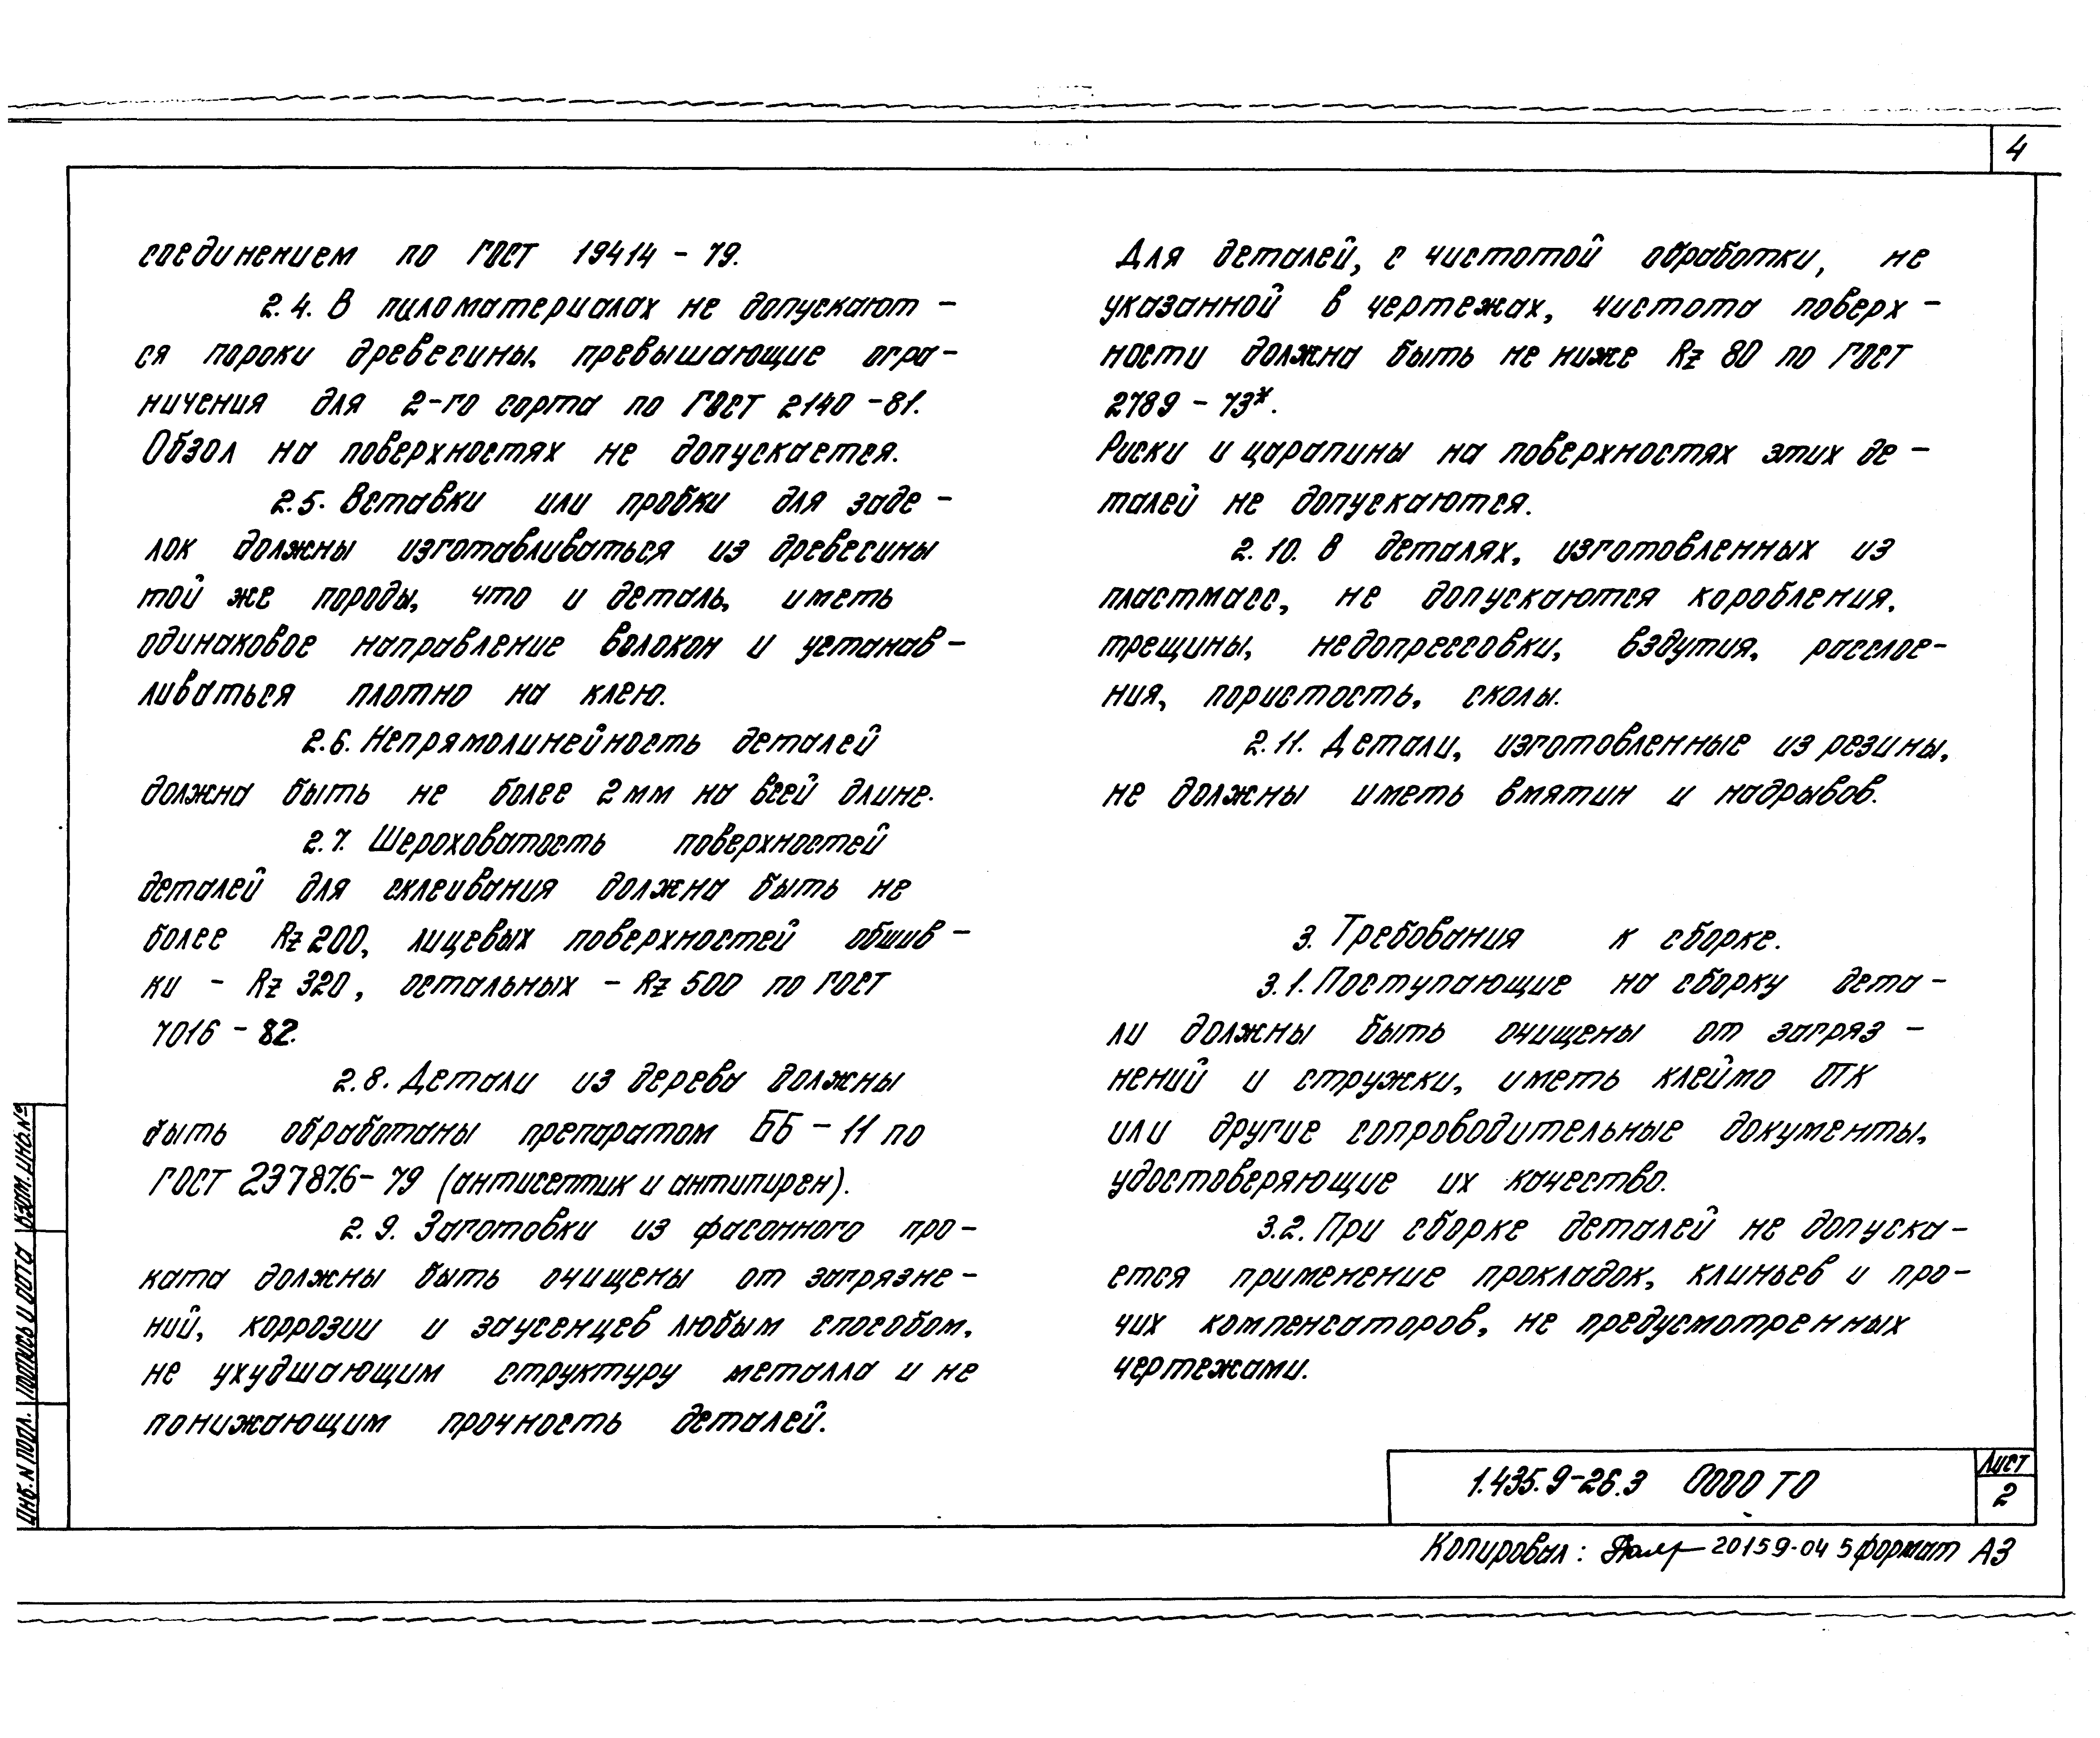 4
соединением по ГОСТ 19414 - 79.
2.4. В пиломатериалах не допускают -
ся пороки древесины, превышающие огра-
ничения для 2-го сорта по ГОСТ 2140 -81.
Обзол на поверхностях не допускается.
2.5. Вставки или пробки для заде -
лок должны изготавливаться из древесины
той же породы, что и деталь, иметь
одинаковое направление волокон и устанав-
ливаться плотно на клею.
2.6. Непрямолинейность деталей
должна быть не более 2 мм на всей длине.
2.7. Шероховатость поверхностей
деталей для склеивания должна быть не
более Rz 200, лицевых поверхностей обшив -
ки - Rz 320, остальных - Rz 500 по ГОСТ
7016 - 82.
2.8. Детали из дерева должны
быть обработаны препаратом ББ - 11 по
ГОСТ 23787.6- 79 (антисептик и антипирен).
2.9. Заготовки из фасонного про-
ката должны быть очищены от загрязне -
ний, коррозии и заусенцев любым способом,
не ухудшающим структуру металла и не
понижающим прочность деталей.
Для деталей, с чистотой обработки, не
указанной в чертежах, чистота поверх -
ности должна быть не ниже Rz 80 по ГОСТ
2789 - 73*.
Риски и царапины на поверхностях этих де -
талей не допускаются.
2.10. В деталях, изготовленных из
пластмасс, не допускаются коробления,
трещины, недопрессовки, вздутия, расслое-
ния, пористость, сколы.
2.11. Детали, изготовленные из резины,
не должны иметь вмятин и надрывов.
3. Требования к сборке.
3.1. Поступающие на сборку дета -
ли должны быть очищены от загряз -
нений и стружки, иметь клеймо ОТК
или другие сопроводительные документы,
удостоверяющие их качество.
3.2. При сборке деталей не допуска-
ется применение прокладок, клиньев и про-
чих компенсаторов, не предусмотренных
чертежами.
Инв. N подл.
Подпись и дата
Взам. инв. №
1.435.9-26.3 0000 ТО
Лист
2
Копировал: 20159-04 5 формат А3